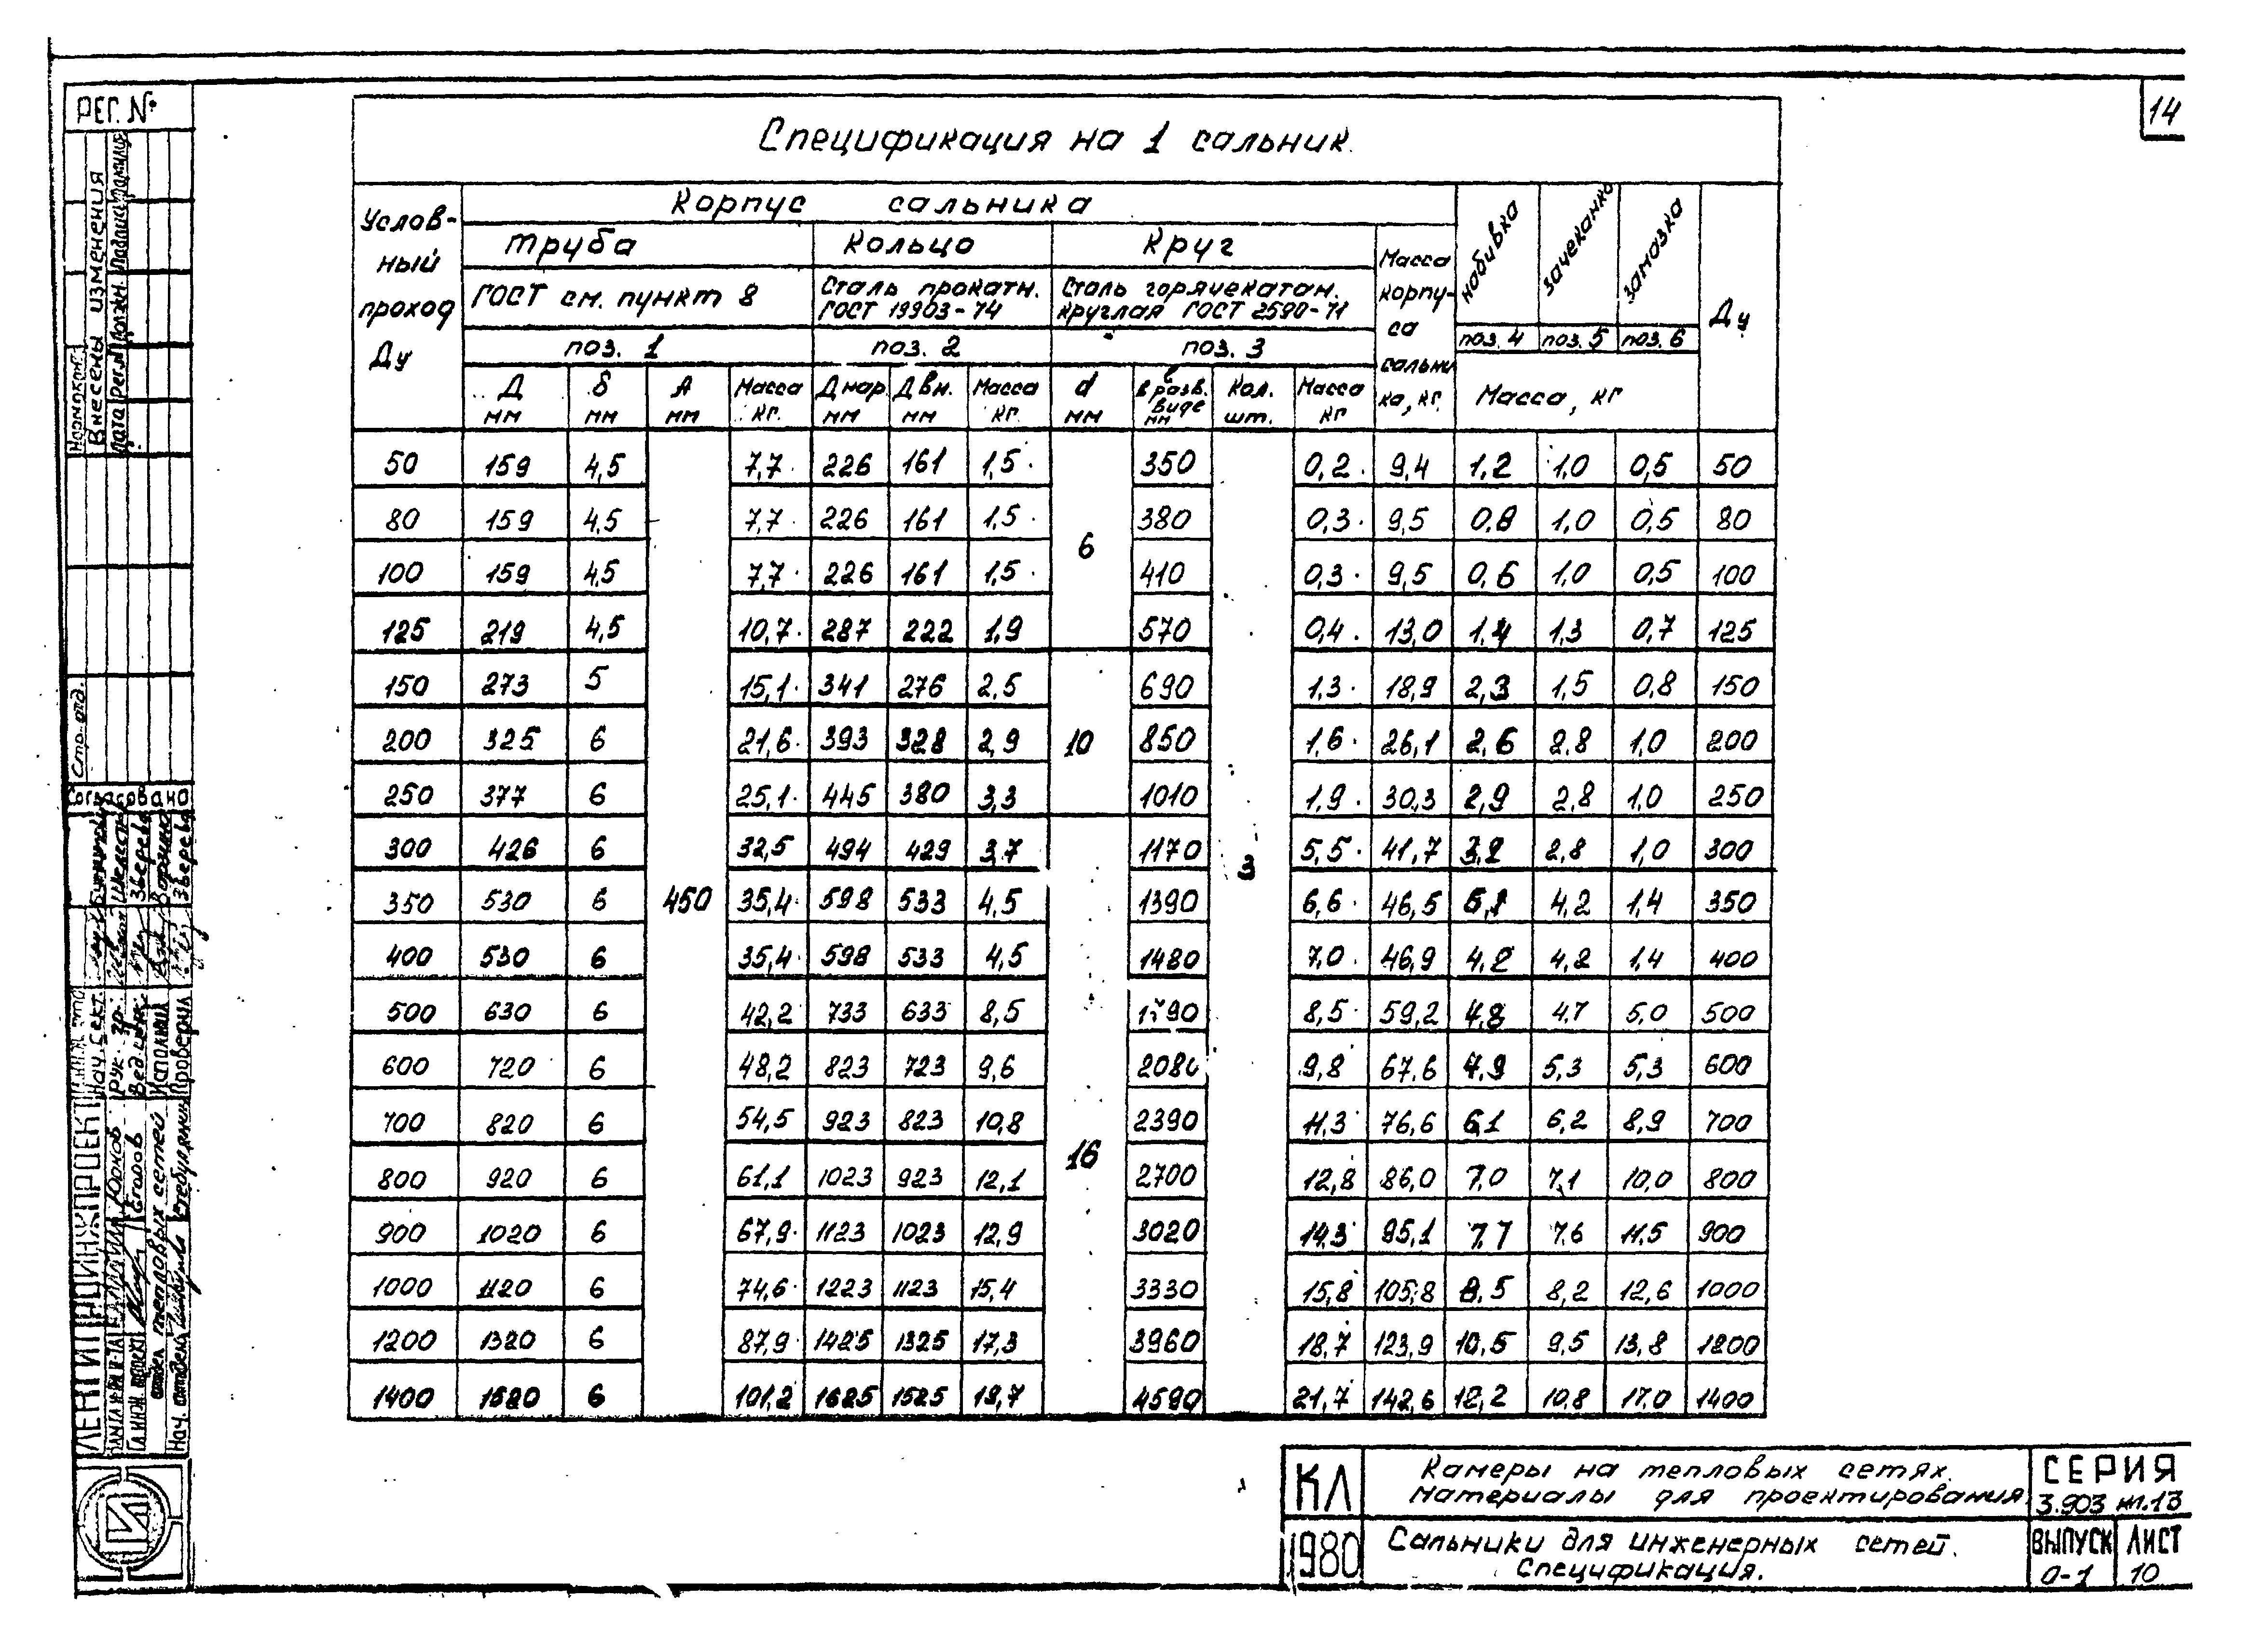 14
РЕГ. №
Спецификация на 1 сальник.
Услов-
ный
проход
Ду
Корпус сальника
труба
Кольцо
Круг
Масса
корпу-
са
сальни
ка, кг.
набивка
зачеканка
замазка
Ду
ГОСТ см. пункт 8
Сталь прокатн.
ГОСТ 19903-74
Сталь горячекатан.
круглая ГОСТ 2590-71
поз. 1
поз. 2
поз. 3
поз. 4 поз. 5 поз. 6
Масса, кг
Д мм
δ мм
А мм
Масса кг.
Д нар. мм
Д вн. мм
Масса кг
d мм
ℓ в разв. виде мм
Кол. шт.
Масса кг
50 159 4,5 7,7 226 161 1,5 350 0,2 9,4 1,2 1,0 0,5 50
80 159 4,5 7,7 226 161 1,5 380 0,3 9,5 0,8 1,0 0,5 80
6
100 159 4,5 7,7 226 161 1,5 410 0,3 9,5 0,6 1,0 0,5 100
125 219 4,5 10,7 287 222 1,9 570 0,4 13,0 1,4 1,3 0,7 125
150 273 5 15,1 341 276 2,5 690 1,3 18,9 2,3 1,5 0,8 150
200 325 6 21,6 393 328 2,9 10 850 1,6 26,1 2,6 2,8 1,0 200
250 377 6 25,1 445 380 3,3 1010 1,9 30,3 2,9 2,8 1,0 250
300 426 6 32,5 494 429 3,7 1170 5,5 41,7 3,2 2,8 1,0 300
3
350 530 6 450 35,4 598 533 4,5 1390 6,6 46,5 5,1 4,2 1,4 350
400 530 6 35,4 598 533 4,5 1480 7,0 46,9 4,2 4,2 1,4 400
500 630 6 42,2 733 633 8,5 1790 8,5 59,2 4,8 4,7 5,0 500
600 720 6 48,2 823 723 9,6 2080 9,8 67,6 4,9 5,3 5,3 600
700 820 6 54,5 923 823 10,8 2390 11,3 76,6 6,1 6,2 8,9 700
16
800 920 6 61,1 1023 923 12,1 2700 12,8 86,0 7,0 7,1 10,0 800
900 1020 6 67,9 1123 1023 12,9 3020 14,3 95,1 7,7 7,6 11,5 900
1000 1120 6 74,6 1223 1123 15,4 3330 15,8 105,8 8,5 8,2 12,6 1000
1200 1320 6 87,9 1425 1325 17,3 3960 18,7 123,9 10,5 9,5 13,8 1200
1400 1520 6 101,2 1625 1525 19,7 4590 21,7 142,6 12,2 10,8 17,0 1400
КЛ
1980
Камеры на тепловых сетях.
Материалы для проектирования
СЕРИЯ
3.903 кл.13
Сальники для инженерных сетей.
Спецификация.
ВЫПУСК
0-1
ЛИСТ
10
Внесены изменения
Дата Рег.№ Должн. Подпись Фамилия
Нормоконт.
Стр. отд.
Согласовано
Нач. сект.
Рук. гр. Шеласт
Вед. инж. Зверева
Исполнил
Проверил Зверева
ЛЕНГИПРОИНЖПРОЕКТ
Юонов
Гл. инж. проект
отдел тепловых сетей
Нач. отдела